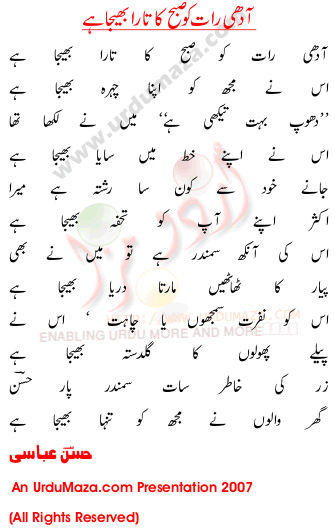 آدھی رات کو صبح کا تارا بھیجا ہے
آدھی رات کو صبح کا تارا بھیجا ہے
اس نے مجھ کو اپنا چہرہ بھیجا ہے
’’دھوپ بہت تیکھی ہے‘‘ میں نے لکھا تھا
اس نے اپنے خط میں سایا بھیجا ہے
جانے خود سے کون سا رشتہ ہے میرا
اکثر اپنے آپ کو تحفہ بھیجا ہے
اس کی آنکھ سمندر ہے تو میں نے بھی
پیار کا ٹھاٹھیں مارتا دریا بھیجا ہے
اس کو نفرت سمجھوں یا چاہت ‘ اس نے
پیلے پھولوں کا گلدستہ بھیجا ہے
زر کی خاطر سات سمندر پار حسنؔ
گھر والوں نے مجھ کو تنہا بھیجا ہے
حسنؔ عباسی
An UrduMaza.com Presentation 2007
(All Rights Reserved)
www.urdumaza.com
اردو مزا
HTTP://WWW.URDUMAZA.COM
ENABLING URDU MORE AND MORE